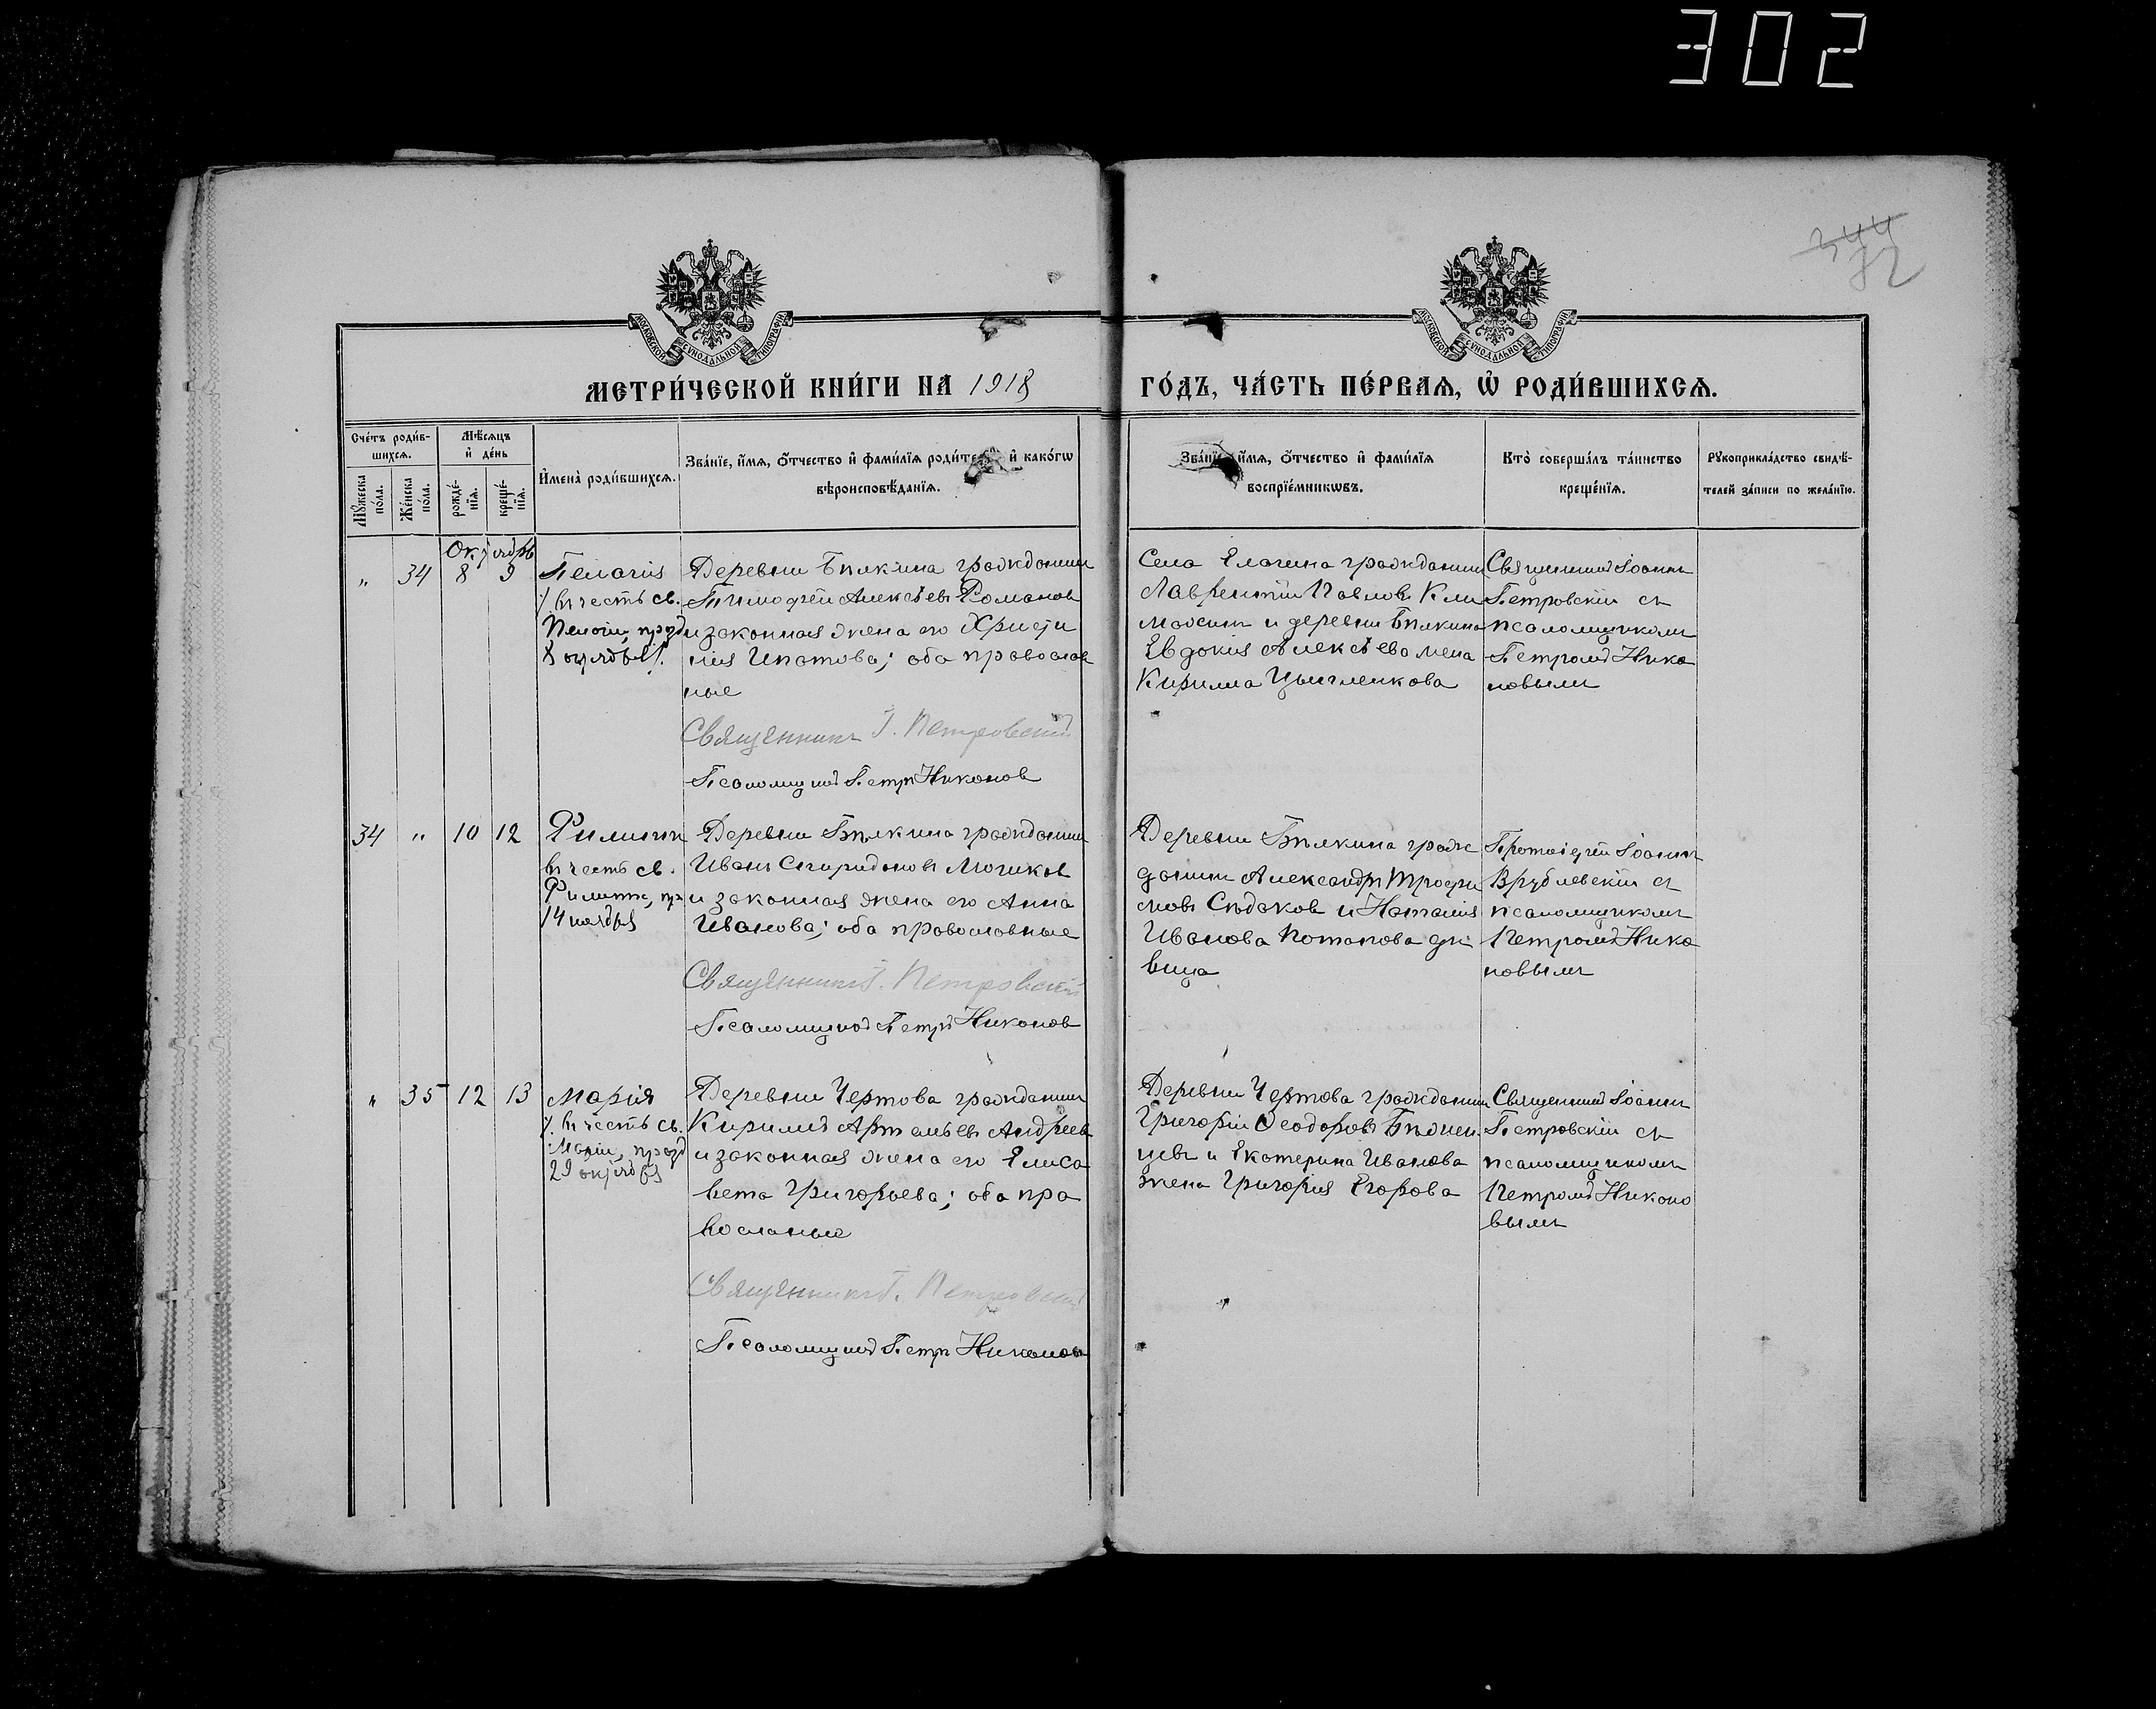 302
344
72
МОСКОВСКОЙ СѴНОДАЛЬНОЙ ТИПОГРАФІИ
МОСКОВСКОЙ СѴНОДАЛЬНОЙ ТИПОГРАФІИ
МЕТРИ́ЧЕСКОЙ КНИ́ГИ НА 1918 ГО́ДЪ, ЧА́СТЬ ПЕ́РВАѦ, Ѡ҆ РОДИ́ВШИХСѦ.
Сче́тъ роди́в-
шихсѧ.
Мꙋ́жеска
по́ла.
Же́нска
по́ла.
Мѣ́сѧцъ
и҆ де́нь
рожде́-
нїѧ.
креще́-
нїѧ.
И҆мена̀ роди́вшихсѧ.
Зва́нїе, и҆́мѧ, ѻ҆́тчество и҆ фами́лїѧ роди́телей, и҆ како́гѡ
вѣроисповѣ́данїѧ.
Зва́нїе, и҆́мѧ, ѻ҆́тчество и҆ фами́лїѧ
воспрїе́мникѡвъ.
Кто̀ соверша́лъ та́инство
креще́нїѧ.
Рꙋкоприкла́дство свидѣ́-
телей за́писи по жела́нїю.
Октябрь
" 34 8 9
Пелагія
/. въ честь св.
Пелагіи, празд
8 октября/.
Деревни Бѣлкина гражданин
Тимофей Алексѣевъ Романов
и законная жена его Христи
нія Ипатова; оба православ
ные
Священникъ І. Петровскій
Псаломщикъ Петръ Никонов
Села Елагина гражданин
Лаврентій Павловъ Кли
машин и деревни Бѣлкина
Евдокія Алексѣева жена
Кирилла Цыгленкова
Священникъ Іоаннъ
Петровскій съ
псаломщикомъ
Петромъ Нико
новымъ
34 " 10 12
Филиппъ
въ честь св.
Филиппа, пр.
14 ноября
Деревни Бѣлкина гражданин
Иванъ Спиридоновъ Мошков
и законная жена его Анна
Иванова; оба православные
Священникъ І. Петровскій
Псаломщикъ Петръ Никонов
Деревни Бѣлкина граж
данинъ Александръ Трофи
мовъ Сѣдаков и Наталія
Иванова Потапова дѣ
вица
Протоіерей Іоаннъ
Врублевскій съ
псаломщикомъ
Петромъ Нико
новымъ
" 35 12 13
Марія
/. въ честь св.
Маріи, празд
29 октября
Деревни Чертова гражданин
Кириллъ Артемьевъ Андреев
и законная жена его Елиса
вета Григорьева; оба пра
вославные
Священникъ І. Петровскій
Псаломщикъ Петръ Никонов
Деревни Чертова гражданин
Григорій Ѳеодоровъ
и Екатерина Иванова
жена Григорія Егорова
Священникъ Іоаннъ
Петровскій съ
псаломщикомъ
Петромъ Никоно
вымъ